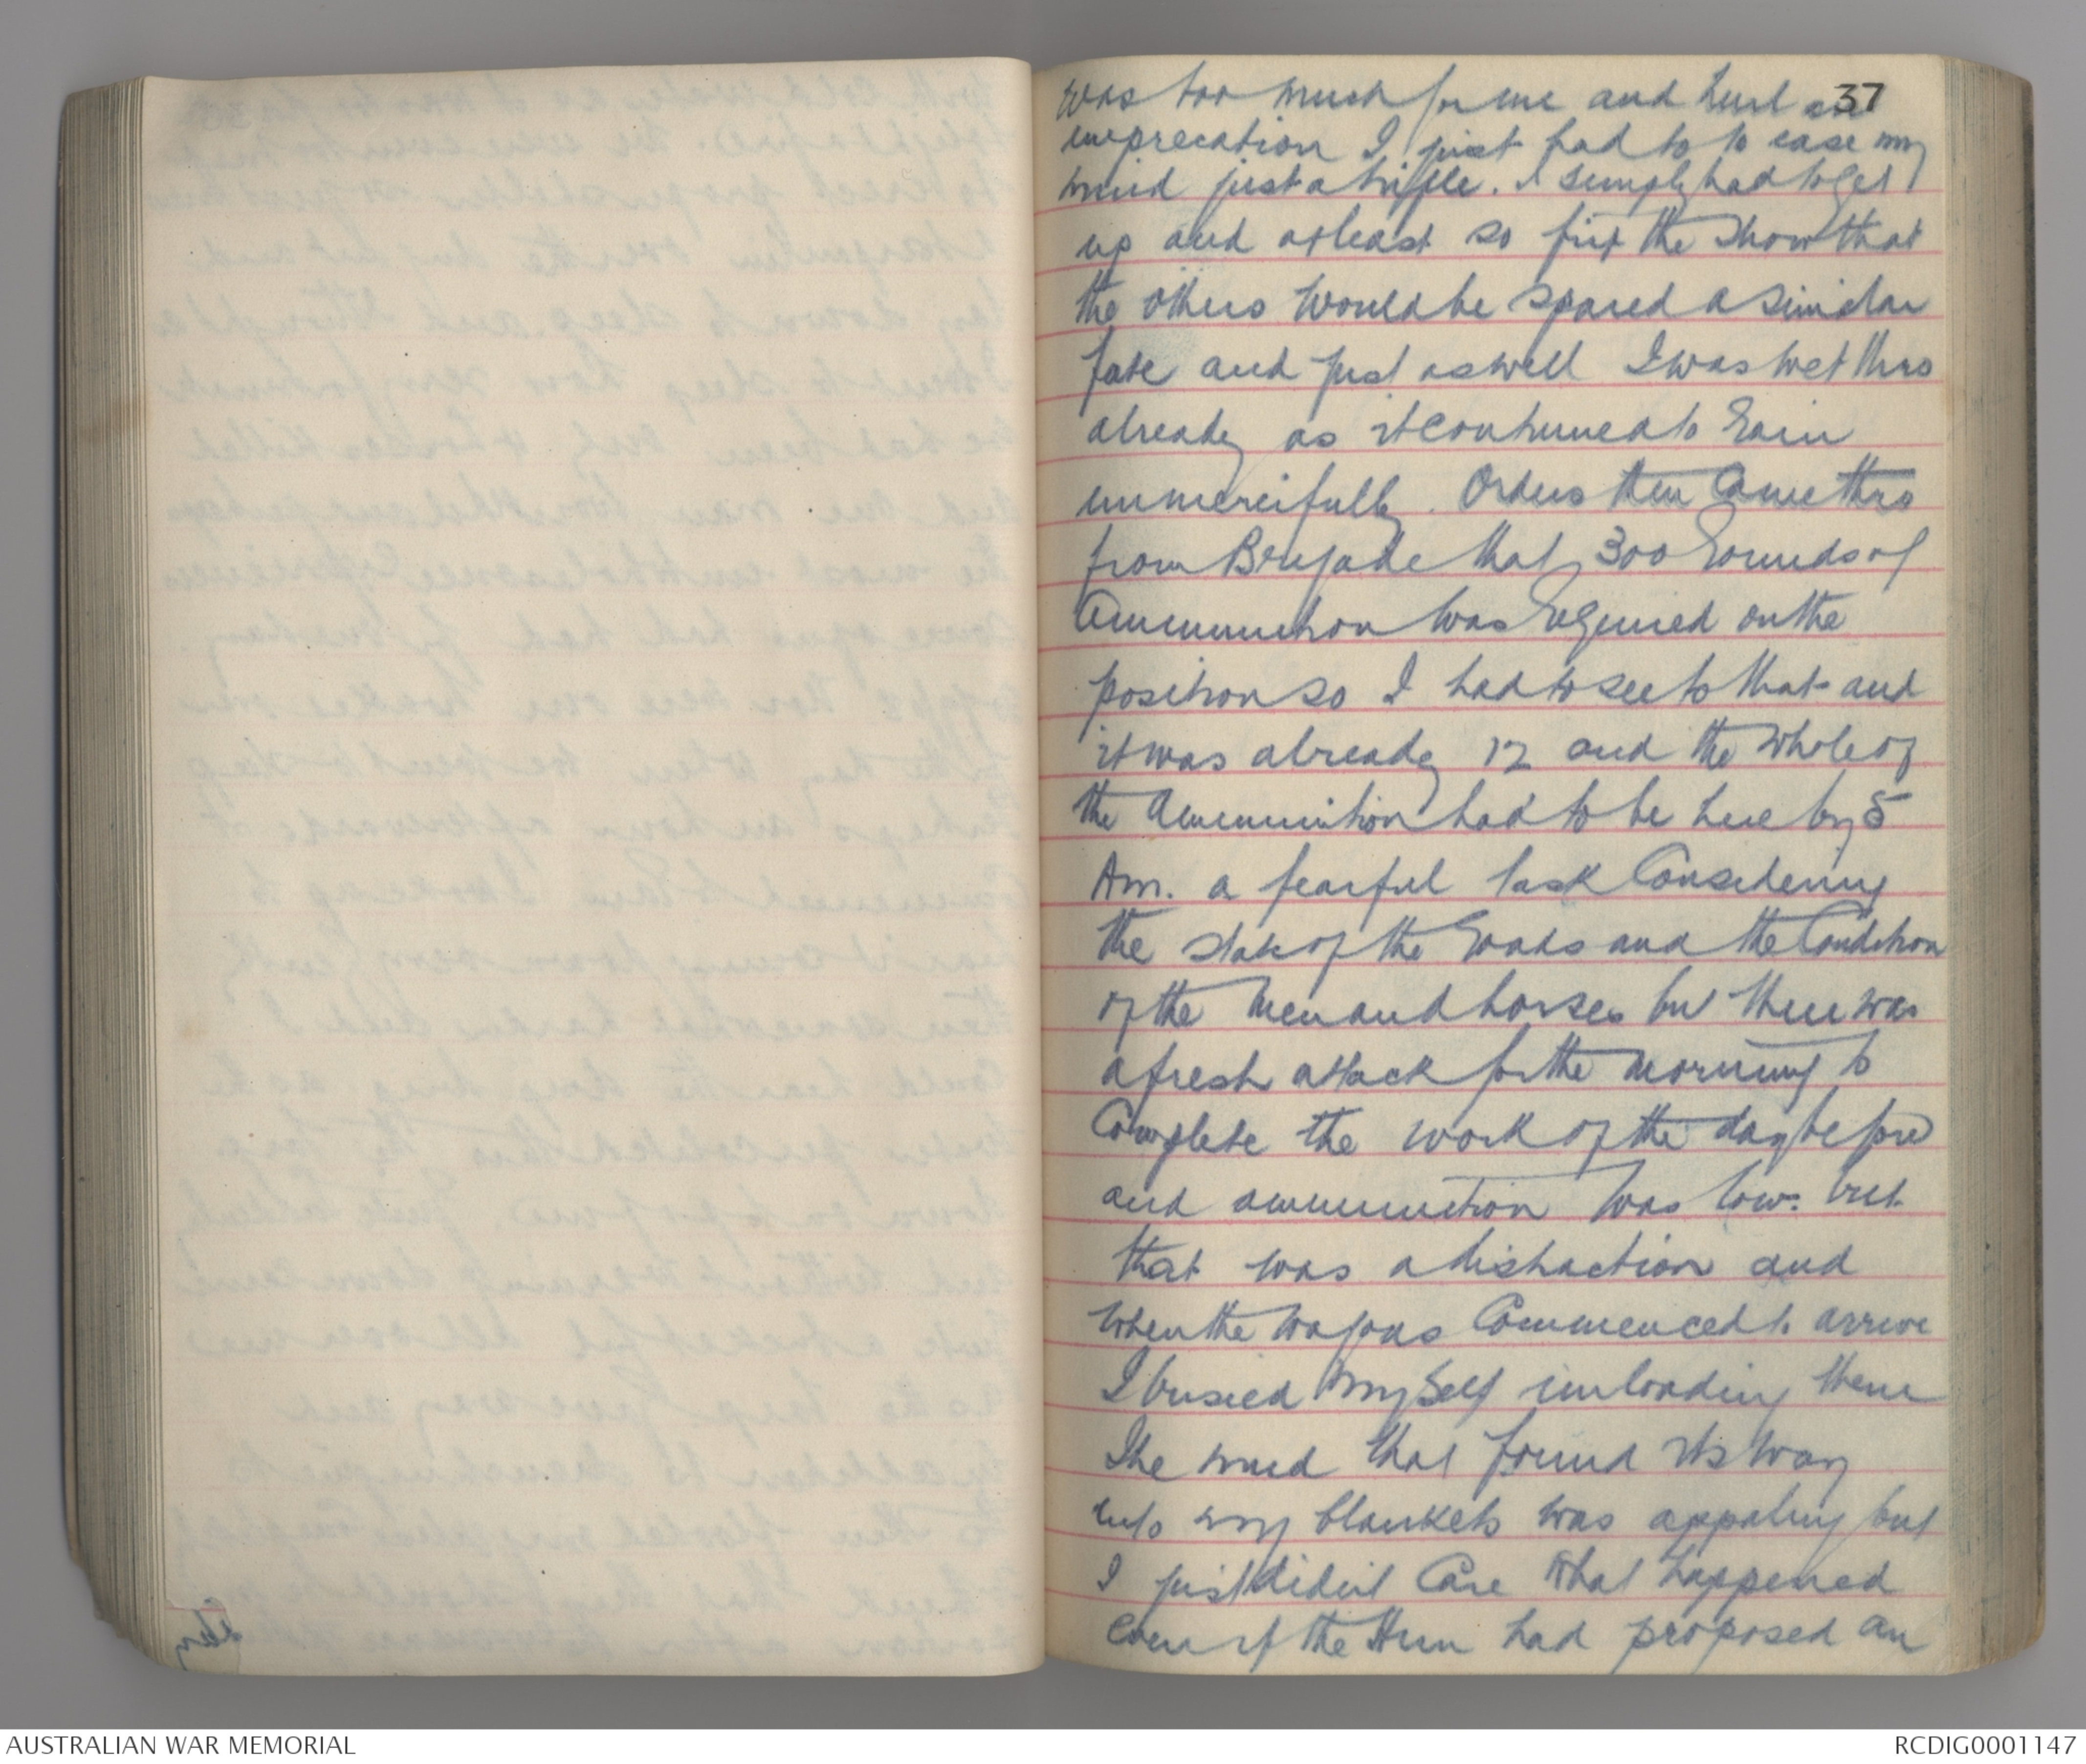 37
was too much for me and hurl an
imprecation I just had to to ease my
mind just a trifle. I simply had to get
up and at least so fix the show that
the others would be spared a similar
fate and just as well I was wet thro
already as it continued to rain
unmercifully. Orders then came thro
from Brigade that 300 rounds of
Ammunition was required on the
position so I had to see to that and
it was already 12 and the whole of
the Ammunition had to be here by 5
Am. a fearful task Considering
the state of the roads and the Condition
of the men and horses but there was
a fresh attack for the morning to
Complete the work of the day before
and ammunition was low. but
that was a distraction and
when the wagons Commenced to arrive
I busied myself unloading them
The mud that found its way
into my blankets was appaling but
I just didint Care what happened
even if the Hun had proposed an
AUSTRALIAN WAR MEMORIAL
RCDIG0001147